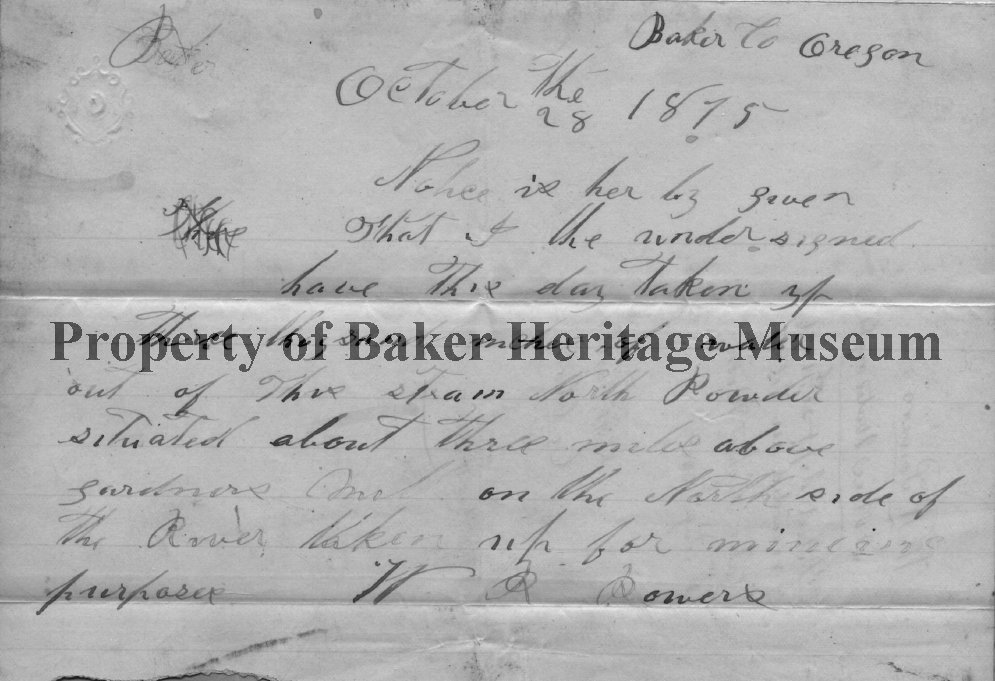 Baker
Baker Co Oregon
October the
28 1875
Notice is her by given
That I the undersigned
have This day taken up
three thousand inches of water
Property of Baker Heritage Museum
out of This stream North Powder
situated about three miles above
gardners on the North side of
the River taken up for mineing
purposes W R Bowers